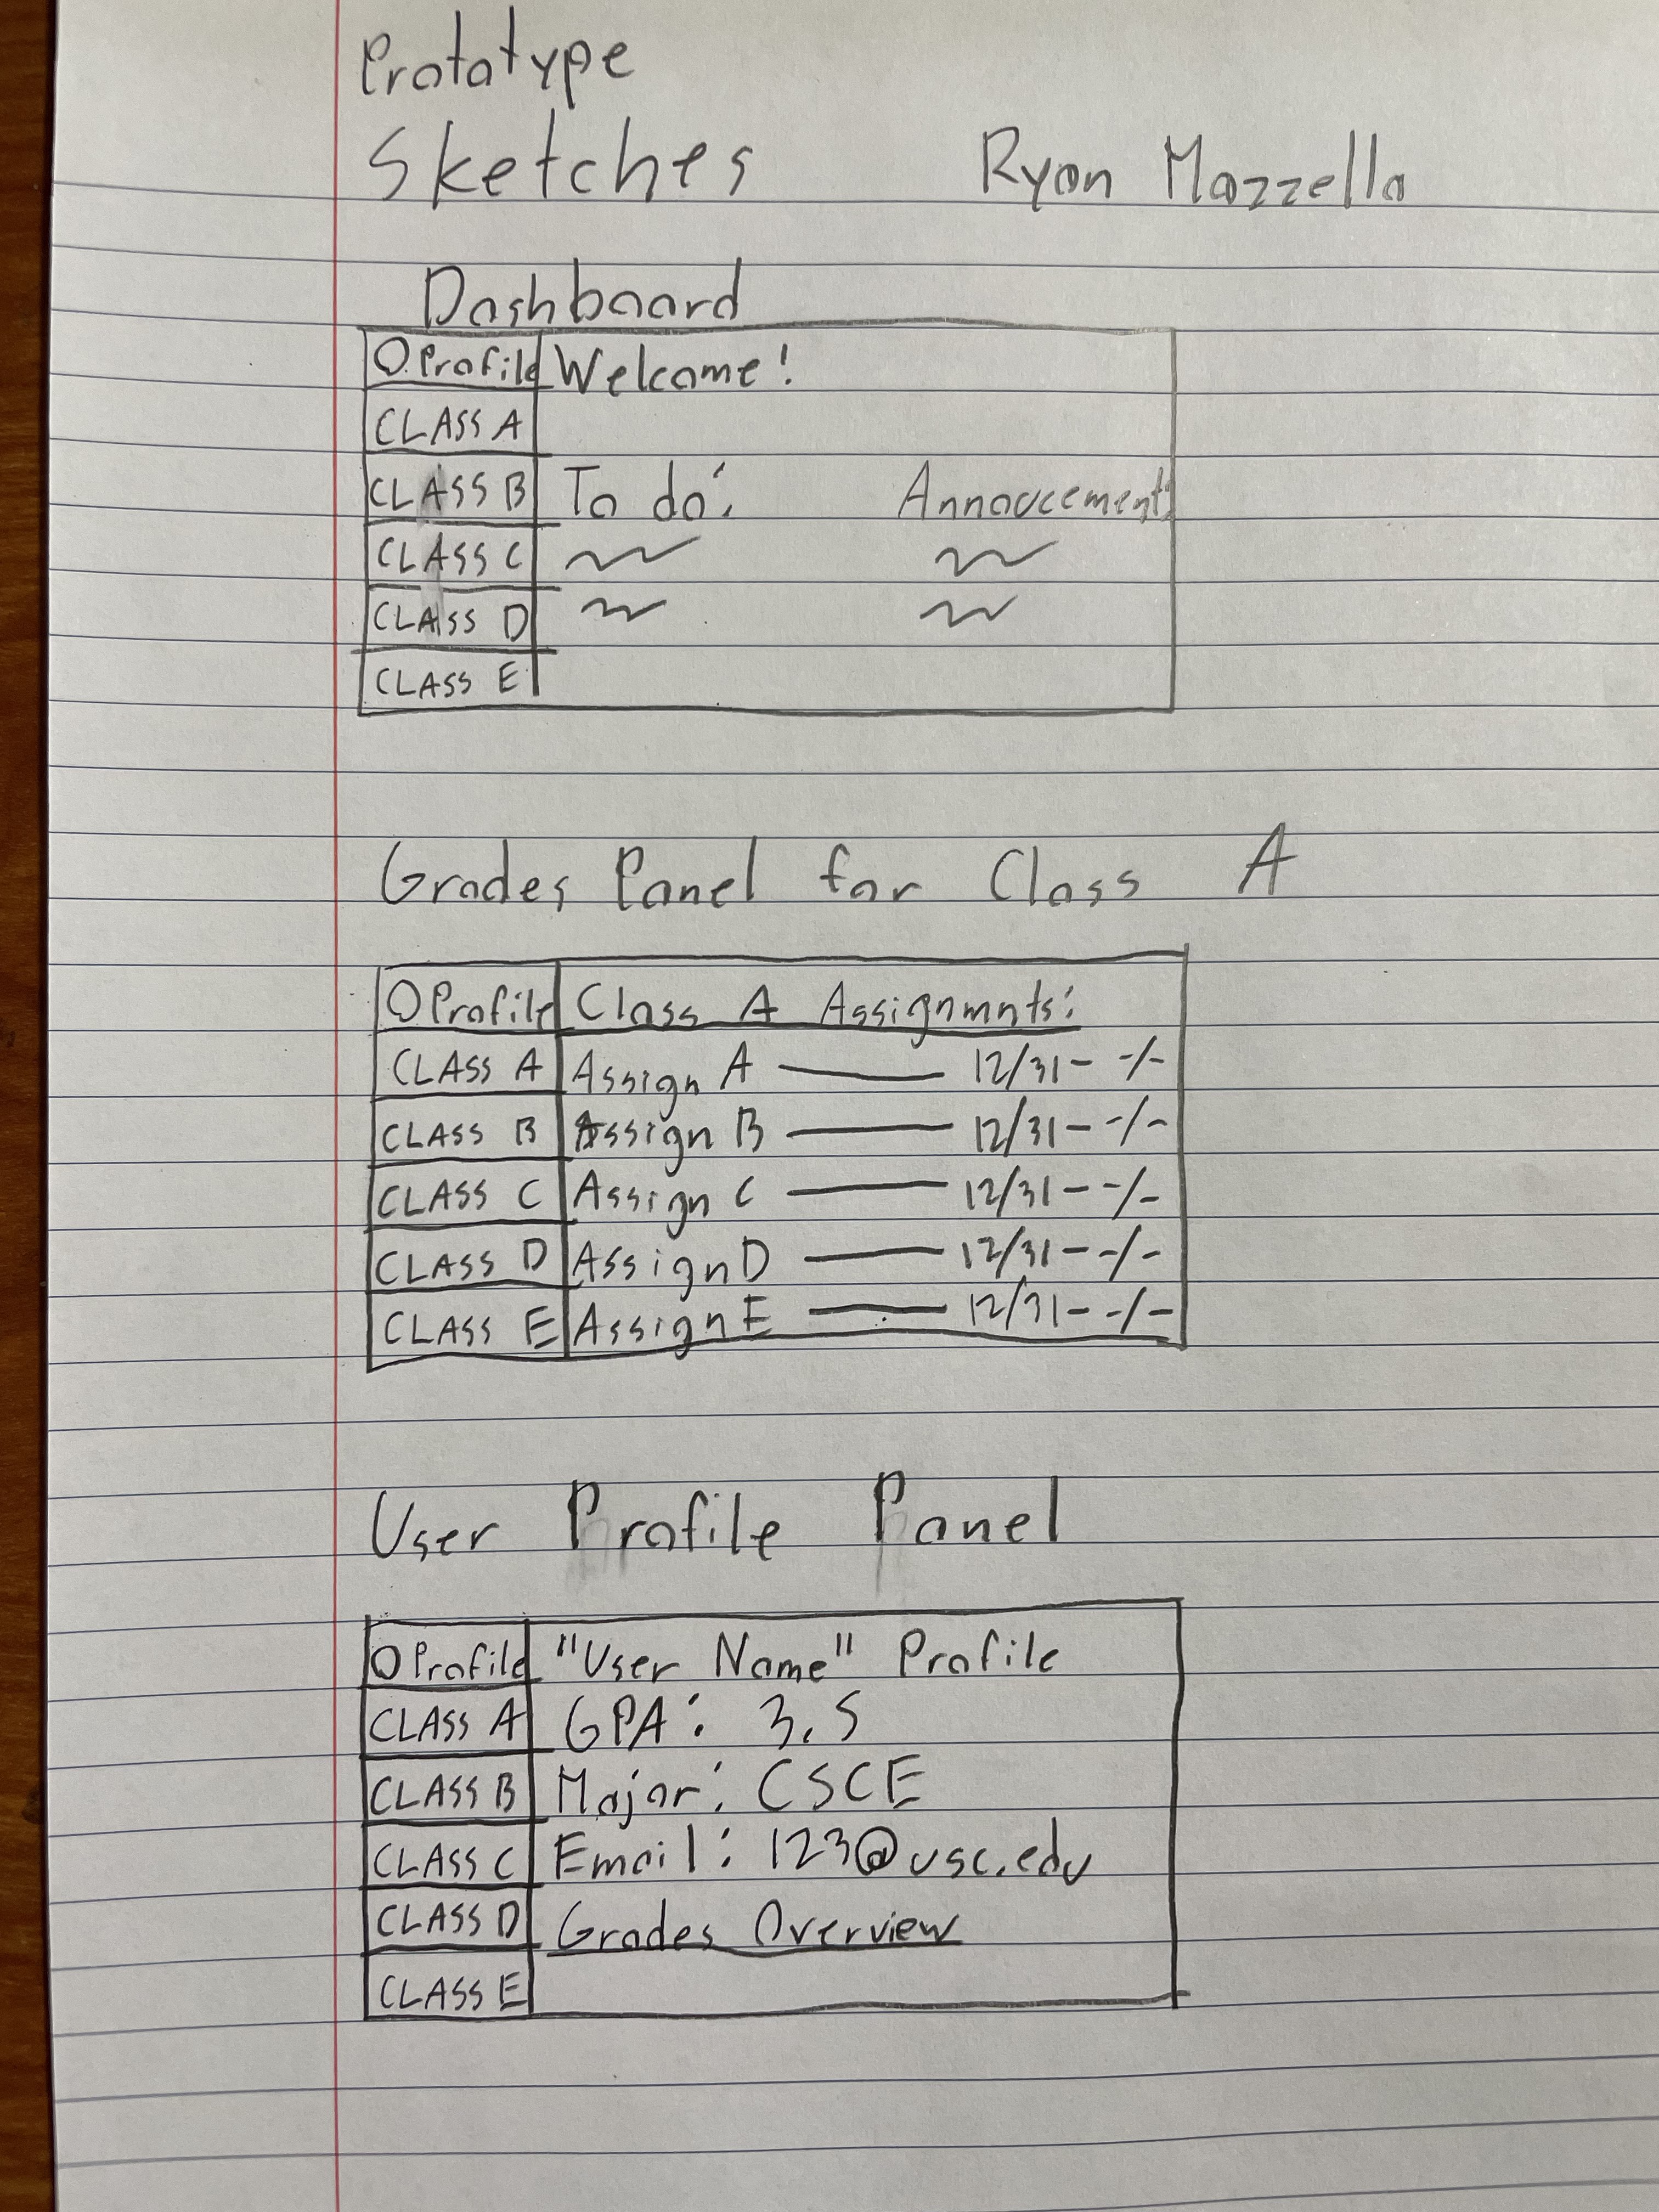 Prototype
Sketches Ryan Mazzella
Dashboard
O Profile Welcome!
CLASS A
CLASS B To do: Annoucement:
CLASS C
CLASS D
CLASS E
Grades Panel for Class A
O Profile Class A Assignmnts:
CLASS A Assign A —— 12/31 - -/-
CLASS B Assign B —— 12/31 - -/-
CLASS C Assign C —— 12/31 - -/-
CLASS D Assign D —— 12/31 - -/-
CLASS E Assign E —— 12/31 - -/-
User Profile Panel
O Profile "User Name" Profile
CLASS A GPA: 3.5
CLASS B Major: CSCE
CLASS C Email: 123@usc.edu
CLASS D Grades Overview
CLASS E